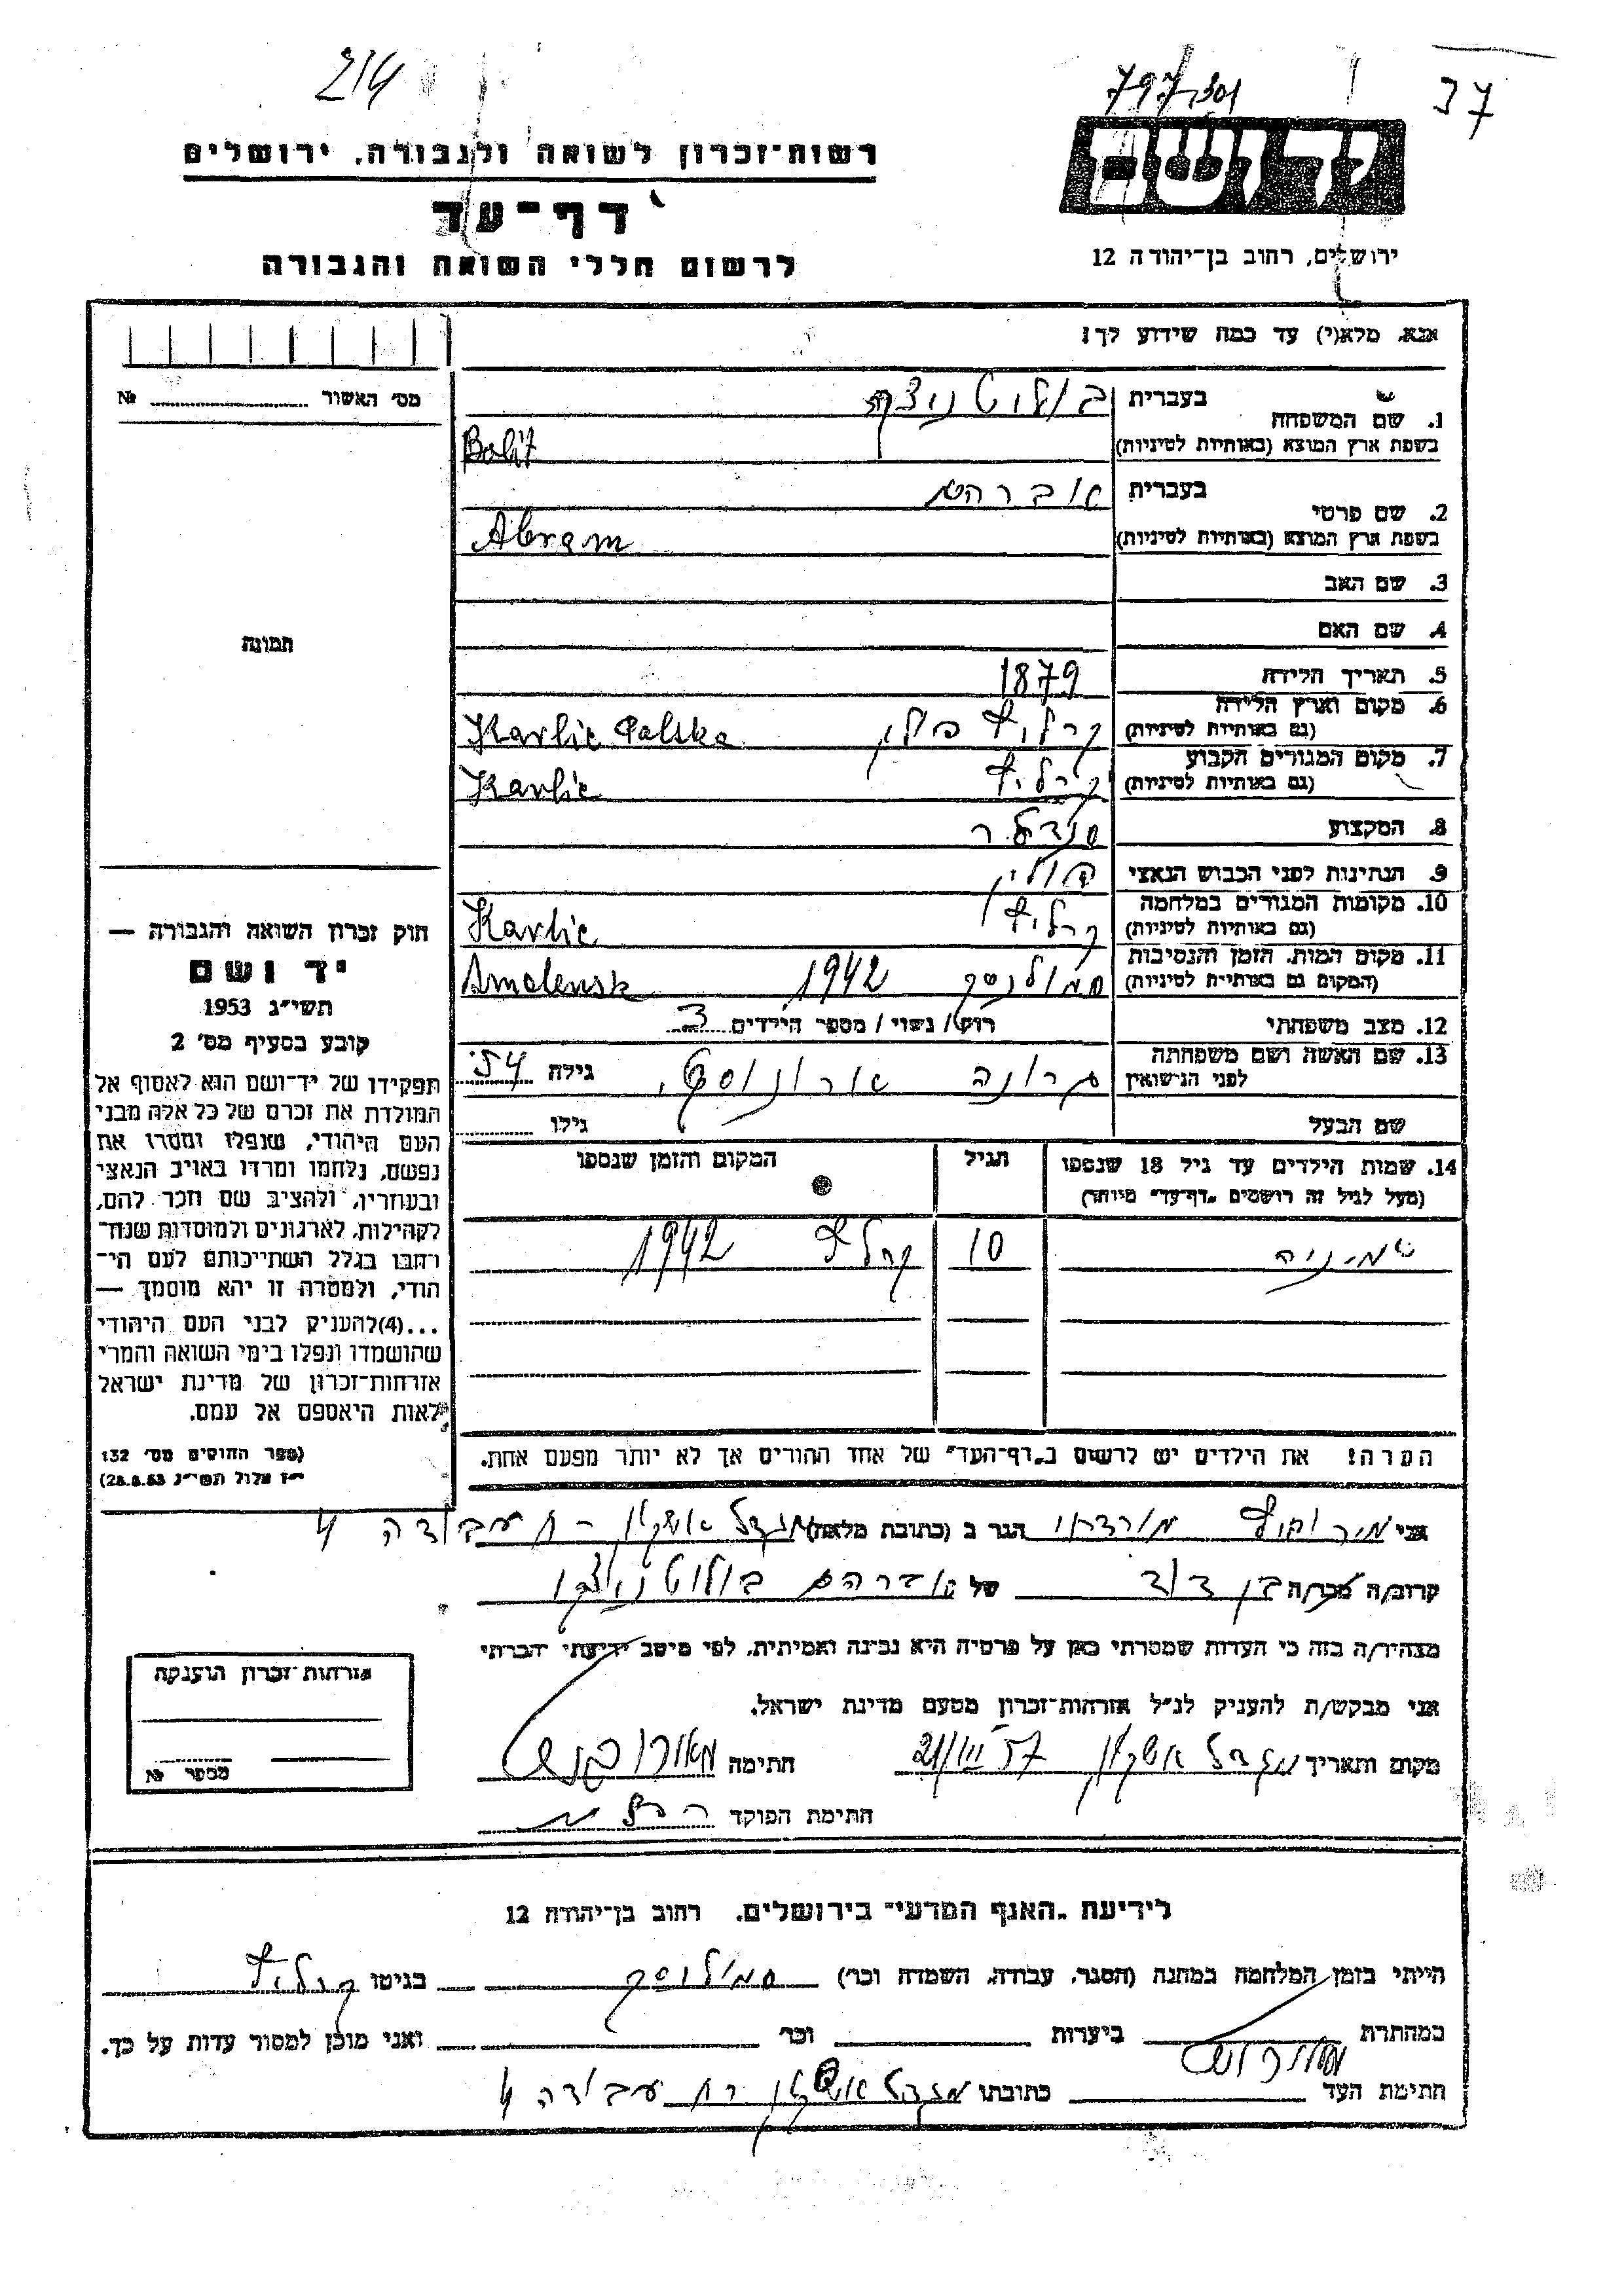 214
797/301
37
רשות־זכרון לשואה ולגבורה, ירושלים
דף־עד
לרשום חללי השואה והגבורה
יד ושם
ירושלים, רחוב בן־יהודה 12
אנא, מלא(י) עד כמה שידוע לך!
מס׳ האשור № 
תמונה
חוק זכרון השואה והגבורה —
יד ושם
תשי״ג 1953
קובע בסעיף מס׳ 2
תפקידו של יד־ושם הוא לאסוף אל
המולדת את זכרם של כל אלה מבני
העם היהודי, שנפלו ומסרו את
נפשם, נלחמו ומרדו באויב הנאצי
ובעוזריו, ולהציב שם וזכר להם,
לקהילות, לארגונים ולמוסדות שנח־
רבו בגלל השתייכותם לעם הי־
הודי, ולמטרה זו יהא מוסמך —
...(4)להעניק לבני העם היהודי
שהושמדו ונפלו בימי השואה והמרי
אזרחות־זכרון של מדינת ישראל
לאות היאספם אל עמם.
(ספר החוקים מס׳ 132
י״ז אלול תשי״ג 28.8.53)
1. שם המשפחה
בעברית בולוטניצקי
בשפת ארץ המוצא (באותיות לטיניות)
2. שם פרטי
בעברית אברהם
בשפת ארץ המוצא (באותיות לטיניות) Abram
3. שם האב
4. שם האם
5. תאריך הלידה 1879
6. מקום וארץ הלידה
(גם באותיות לטיניות) קרליץ פולין Karlic Polska
7. מקום המגורים הקבוע
(גם באותיות לטיניות) קרליץ Karlic
8. המקצוע סנדלר
9. הנתינות לפני הכבוש הנאצי פולין
10. מקומות המגורים במלחמה
(גם באותיות לטיניות) קרליץ Karlic
11. מקום המות, הזמן והנסיבות
(המקום גם באותיות לטיניות) סמולנסק 1942 Smolensk
12. מצב משפחתי רווק / נשוי / מספר הילדים 3
13. שם האשה ושם משפחתה
לפני הנישואין ארונובסקי גילה 54
שם הבעל גילו
14. שמות הילדים עד גיל 18 שנספו
(מעל לגיל זה רושמים „דף־עד״ מיוחד)
הגיל
המקום והזמן שנספו
10 קרליץ 1942
הערה! את הילדים יש לרשום ב„דף־העד״ של אחד ההורים אך לא יותר מפעם אחת.
אני מרדכי הגר ב (כתובת מלאה) מגדל אשקלון - רח עבודה 4
קרוב/ה מכר/ה בן דוד של אברהם בולוטניצקי
מצהיר/ה בזה כי העדות שמסרתי כאן על פרטיה היא נכונה ואמיתית, לפי מיטב ידיעתי והכרתי
אני מבקש/ת להעניק לנ״ל אזרחות־זכרון מטעם מדינת ישראל.
מקום ותאריך מגדל אשקלון 21/VII 57 חתימה
חתימת הפוקד
אזרחות־זכרון הוענקה
מספר №
לידיעת „האגף המדעי״ בירושלים, רחוב בן־יהודה 12
הייתי בזמן המלחמה במחנה (הסגר, עבודה, השמדה וכו׳) סמולנסק בגיטו קרליץ
במחתרת ביערות וכו׳ ואני מוכן למסור עדות על כך.
חתימת העד כתובתו מגדל אשקלון רח עבודה 4